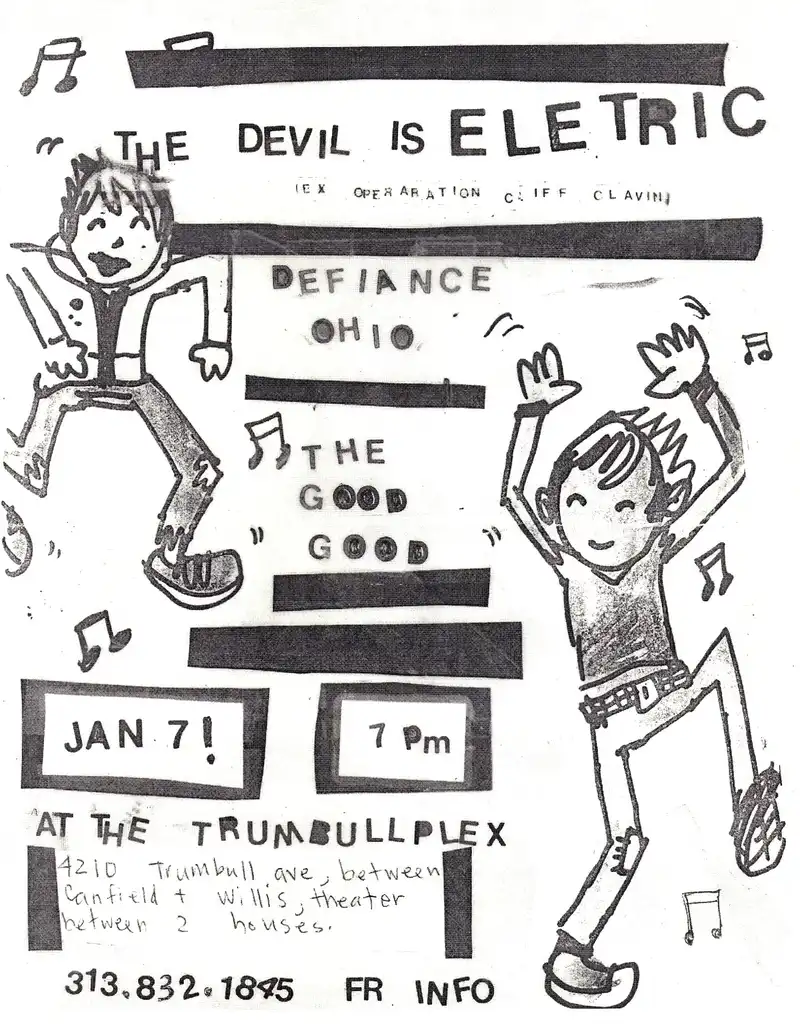 THE DEVIL IS ELETRIC
(EX OPERARATION CLIFF CLAVIN)
DEFIANCE
OHIO
THE
GOOD
GOOD
JAN 7!
7 Pm
AT THE TRUMBULLPLEX
4210 Trumbull ave, between
Canfield + Willis, theater
between 2 houses.
313.832.1845 FR INFO